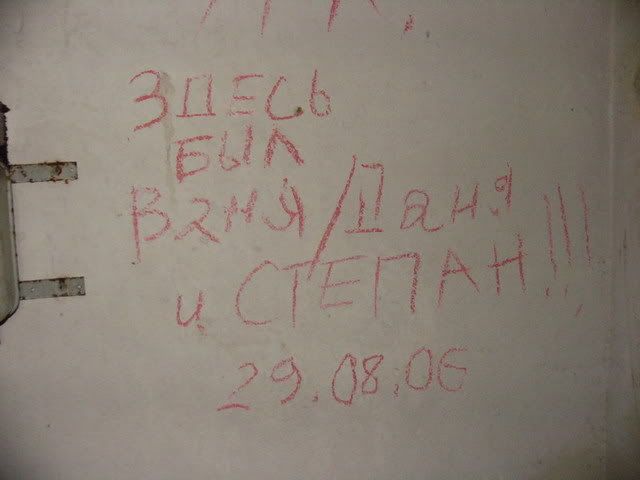 ЗДЕСЬ
БЫЛ
Ваня/Даня
и СТЕПАН!!!
29.08.06